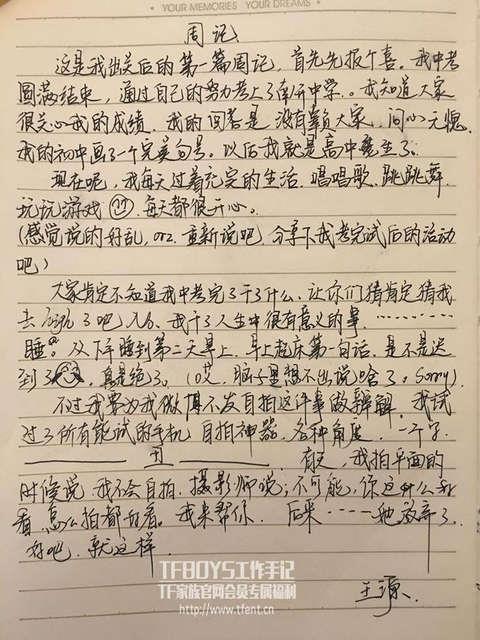 YOUR MEMORIES YOUR DREAMS
周记
这是我出关后的第一篇周记，首先先报个喜．我中考
圆满结束，通过自己的努力考上了南开中学．。我知道大家
很关心我的成绩．我的回答是 没有辜负大家．问心无愧．
我的初中画了一个完美句号。以后我就是高中生了。
现在呢，我每天过着充实的生活．唱唱歌．跳跳舞．
玩玩游戏．每天都很开心。
(感觉说的好乱，orz．重新说吧．分享下我考完试后的活动
吧)
大家肯定不知道我中考完了干了什么．让你们猜肯定猜我
去 了吧 ．我干了人生中很有意义的事．…………
睡。从下午睡到第二天早上．早上起床第一句话．是不是迟
到了 ．真是绝了。(哎．脑子里想不出说啥了。Sorry)
不过我要为我微博不发自拍这件事做辩解．我试
过了所有能试的手机．自拍神器．各种角度．一个字．
丑 ．有天，我拍平面的
时候说．我不会自拍．摄影师说：不可能，你这什么
看，怎么拍都好看。我来帮你． 后来……她放弃了．
好吧．就这样．
王源．
TFBOYS工作手记
TF家族官网会员专属福利
http://www.tfent.cn